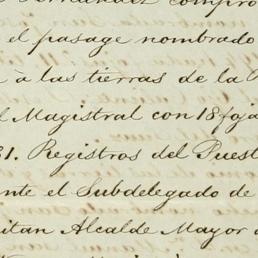 el pasage nombrado
à las tierras de la
Magistral con 18 foja
31. Registros del Puest
nte el Subdelegado de
itan Alcalde Mayor